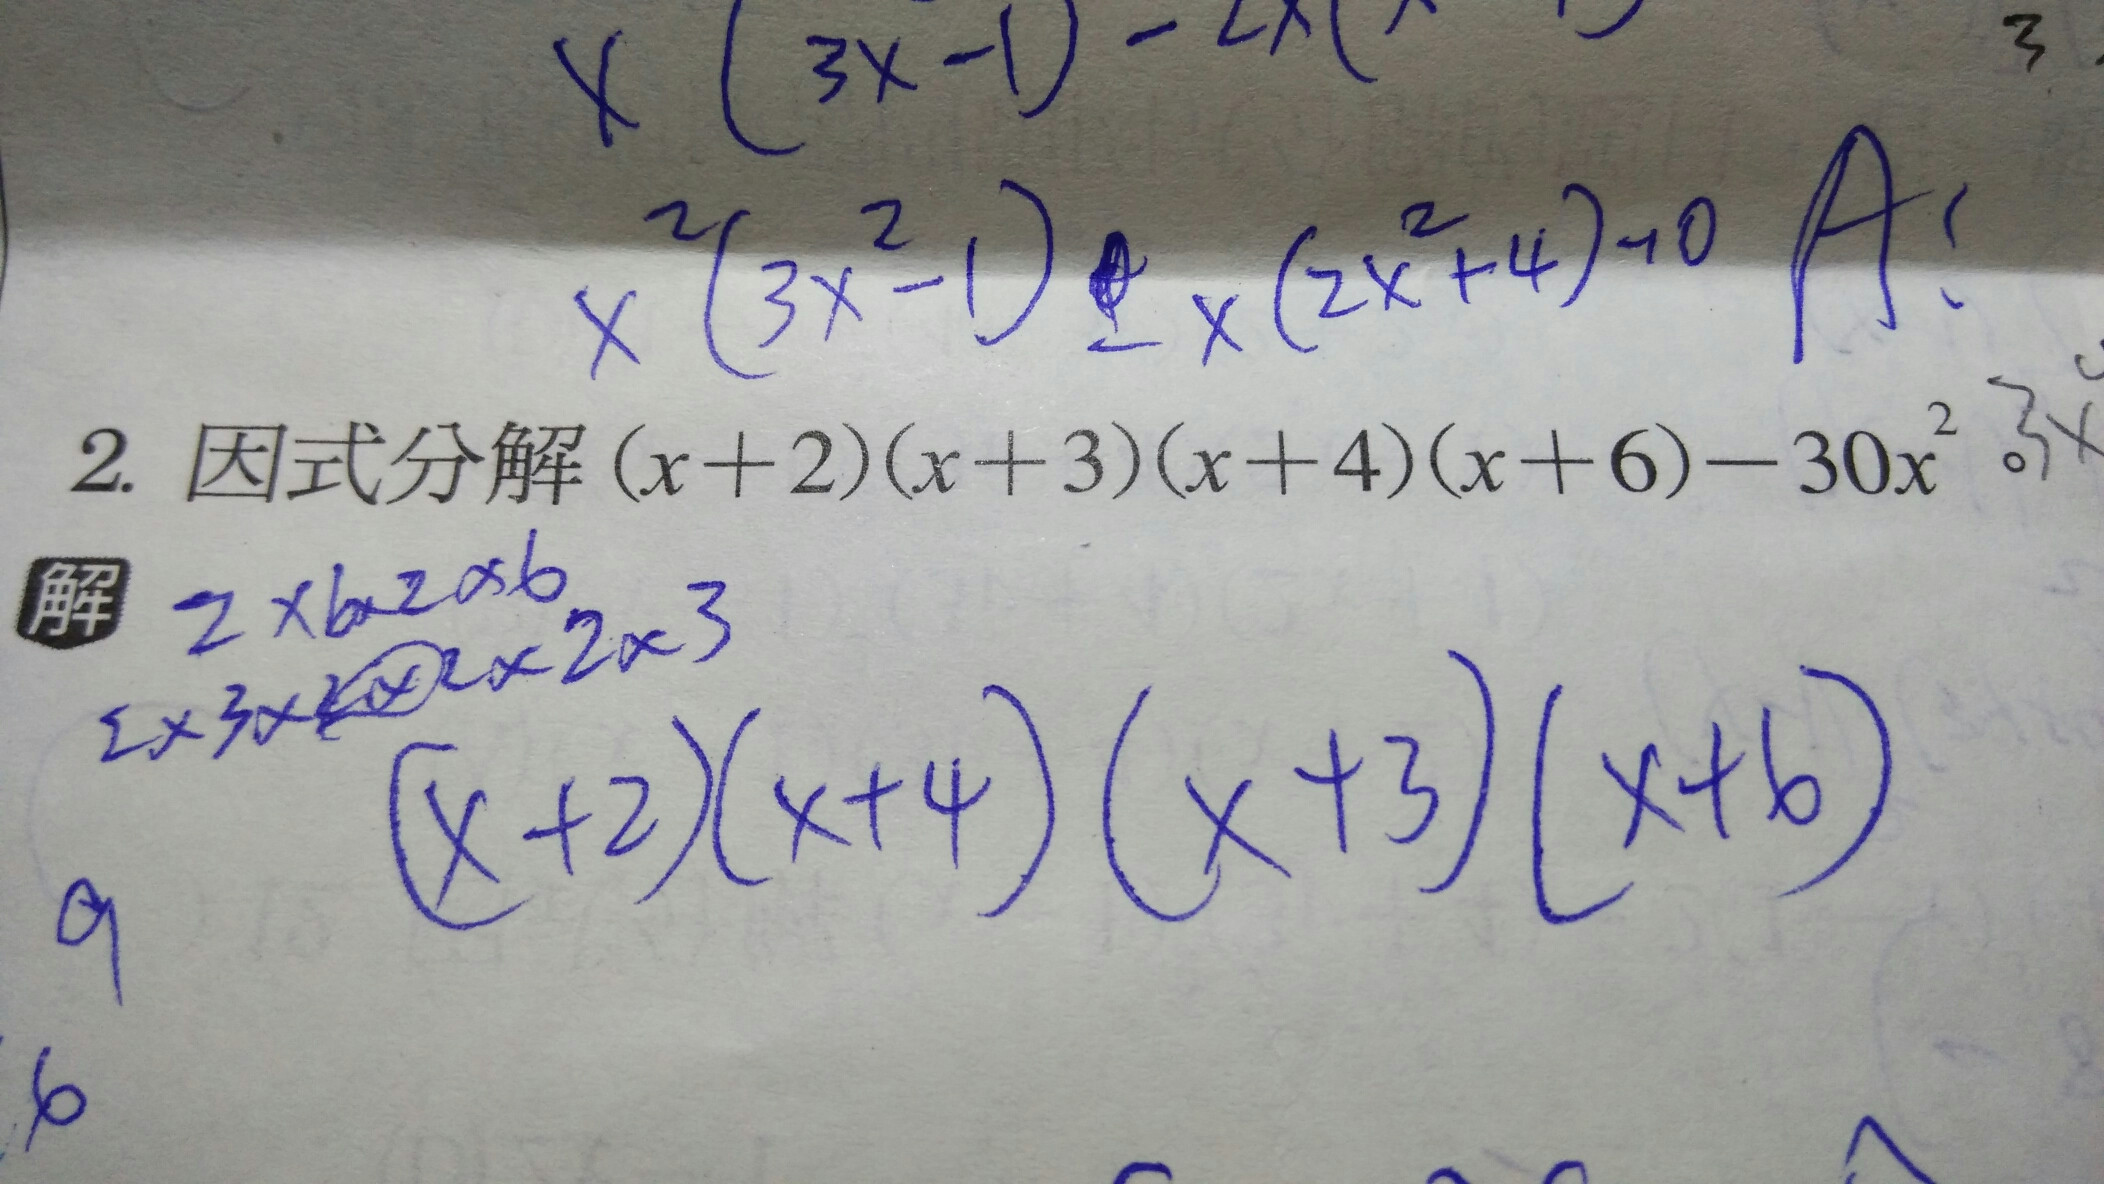 x(3x-1)-2x(x
3
x²(3x²-1)-x(2x²+4)+10 A:
2. 因式分解(x+2)(x+3)(x+4)(x+6)-30x²。
3x
解 2×6×2×6
2×3×2×2×2×3
(x+2)(x+4)(x+3)(x+6)
9
6